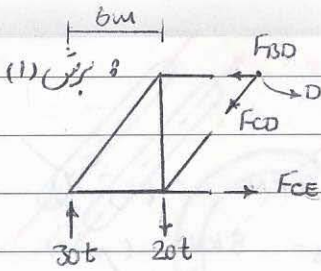 6m
برش (1) :
F_BD
D
F_CD
F_CE
30t 20t